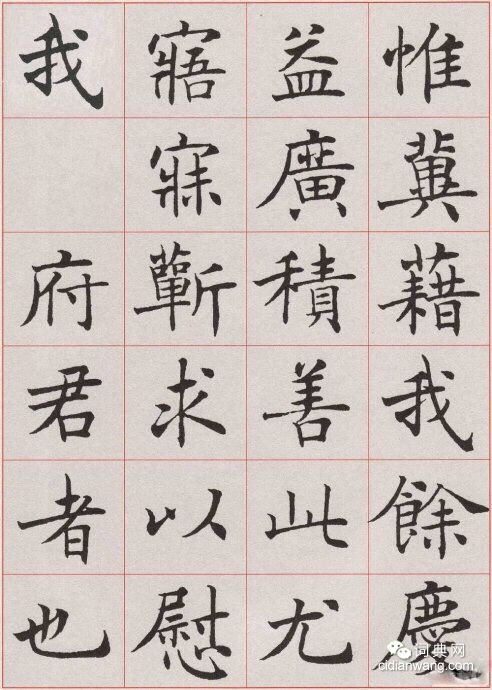 惟冀藉我餘慶
益廣積善此尤
寤寐蘄求以慰
我 府君者也
词典网
cidianwang.com